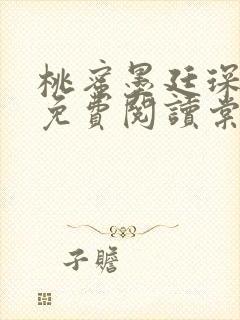 桃蜜墨廷琛
免費閱讀棠
子瞻